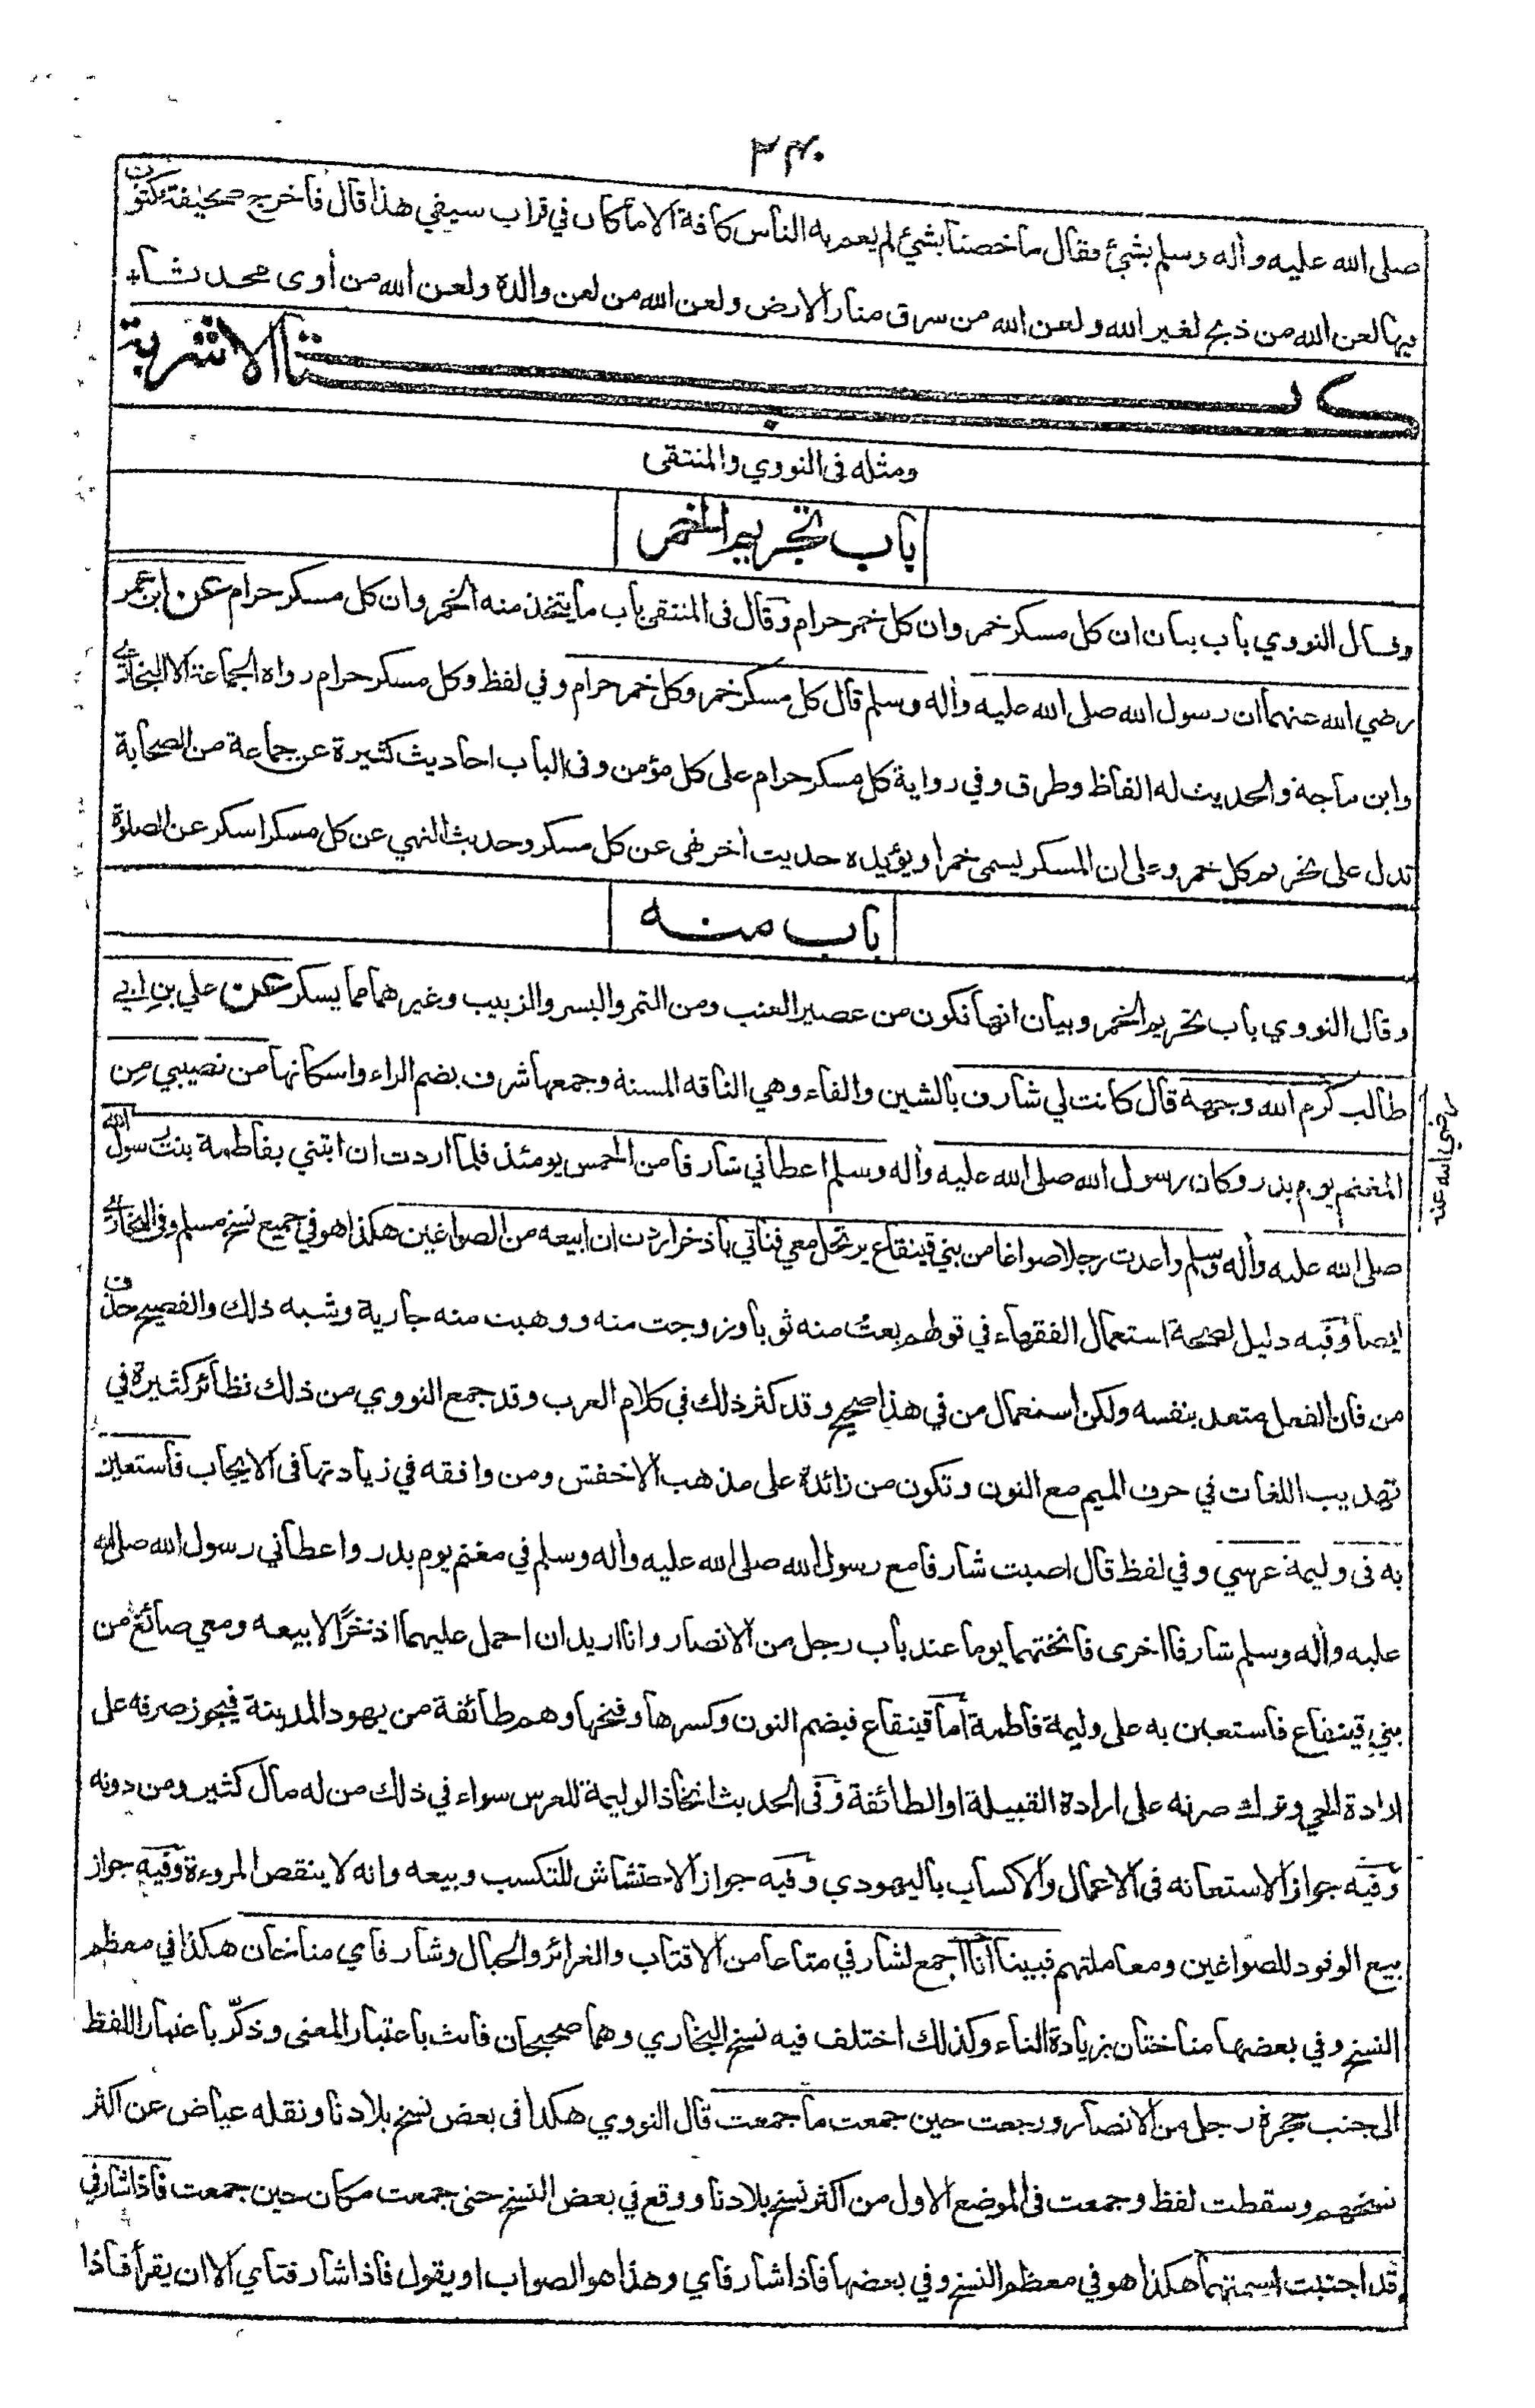 ٢٣٠
صلى الله عليه وأله وسلم بشئ فقال ما خصنا بشئ لم يعم به الناس كافة الا ما كان في قراب سيفي هذا قال فاخرج صحيفة مكتوب
فيها لعن الله من ذبح لغير الله ولعن الله من سرق منار الارض ولعن الله من لعن والده ولعن الله من أوى محدثا
كتاب الاشربة
ومثله فى النووي والمنتقى
باب تحريم الخمر
وقال النووي باب بيان ان كل مسكر خمر وان كل خمر حرام وقال فى المنتقى باب ما يتخذ منه الخمر وان كل مسكر حرام عن ابن عمر
رضي الله عنهما ان رسول الله صلى الله عليه وأله وسلم قال كل مسكر خمر وكل خمر حرام وفي لفظ وكل مسكر حرام رواه الجماعة الا البخاري
وابن ماجة والحديث له الفاظ وطرق وفي رواية كل مسكر حرام على كل مؤمن وفى الباب احاديث كثيرة عن جماعة من الصحابة
تدل على تحريم كل خمر وعلى ان المسكر يسمى خمرا ويؤيده حديث أخر نهى عن كل مسكر وحديث النهي عن كل مسكر اسكر عن الصلوة
باب منه
وقال النووي باب تحريم الخمر وبيان انها تكون من عصير العنب ومن التمر والبسر والزبيب وغيرهما مما يسكر عن علي بن ابي
طالب كرم الله وجهه قال كانت لي شارف بالشين والفاء وهي الناقه المسنة وجمعها شرف بضم الراء واسكانها من نصيبي من
رضي الله عنه
المغنم يوم بدر وكان رسول الله صلى الله عليه وأله وسلم اعطاني شارفا من الخمس يومئذ فلما اردت ان ابتني بفاطمة بنت رسول الله
صلى الله عليه وأله وسلم واعدت رجلا صواغا من بني قينقاع يرتحل معي فناتي باذخر اردت ان ابيعه من الصواغين هكذا هو في جميع نسخ مسلم وفى البخاري
ايضا وفيه دليل لصحة استعمال الفقهاء في قولهم بعت منه ثوبا وزوجت منه ووهبت منه جارية وشبه ذلك والفصيح حذف
من فان الفعل متعد بنفسه ولكن استعمال من في هذا صحيح وقد كثر ذلك في كلام العرب وقد جمع النووي من ذلك نظائر كثيرة في
تهذيب اللغات في حرف الميم مع النون وتكون من زائدة على مذهب الاخفش ومن وافقه في زيادتها فى الايجاب فاستعين
به فى وليمة عرسي وفي لفظ قال اصبت شارفا مع رسول الله صلى الله عليه واله وسلم في مغنم يوم بدر واعطاني رسول الله صلى الله
عليه وأله وسلم شارفا اخرى فانختهما يوما عند باب رجل من الانصار وانا اريد ان احمل عليهما اذخرًا لابيعه ومعي صائغ من
بني قينقاع فاستعين به على وليمة فاطمة أما قينقاع فبضم النون وكسرها وفتحها وهم طائفة من يهود المدينة فيجوز صرفه على
ارادة الحي وترك صرفه على ارادة القبيلة او الطائفة وفى الحديث اتخاذ الوليمة للعرس سواء في ذلك من له مال كثير ومن دونه
وفيه جواز الاستعانه فى الاعمال والاكساب باليهودي وفيه جواز الاحتشاش للتكسب وبيعه وانه لا ينقص المروءة وفيه جواز
بيع الوقود للصواغين ومعاملتهم فبينا أنا أجمع لشارفي متاعا من الاقتاب والغرائر والحبال وشارفاي مناخان هكذا في معظم
النسخ وفي بعضها مناختان بزيادة التاء وكذلك اختلف فيه نسخ البخاري وهما صحيحان فانث باعتبار المعنى وذكّر باعتبار اللفظ
الى جنب حجرة رجل من الانصار ورجعت حين جمعت ما جمعت قال النووي هكذا فى بعض نسخ بلادنا ونقله عياض عن اكثر
نسخهم وسقطت لفظ وجمعت فى الموضع الاول من اكثر نسخ بلادنا ووقع في بعض النسخ حتى جمعت مكان حين جمعت فاذا شارفي
قد اجتبت اسمنتهما هكذا هو في معظم النسخ وفي بعضها فاذا شارفاي وهذا هو الصواب او يقول فاذا شارفتاي الا ان يقرأ فاذا